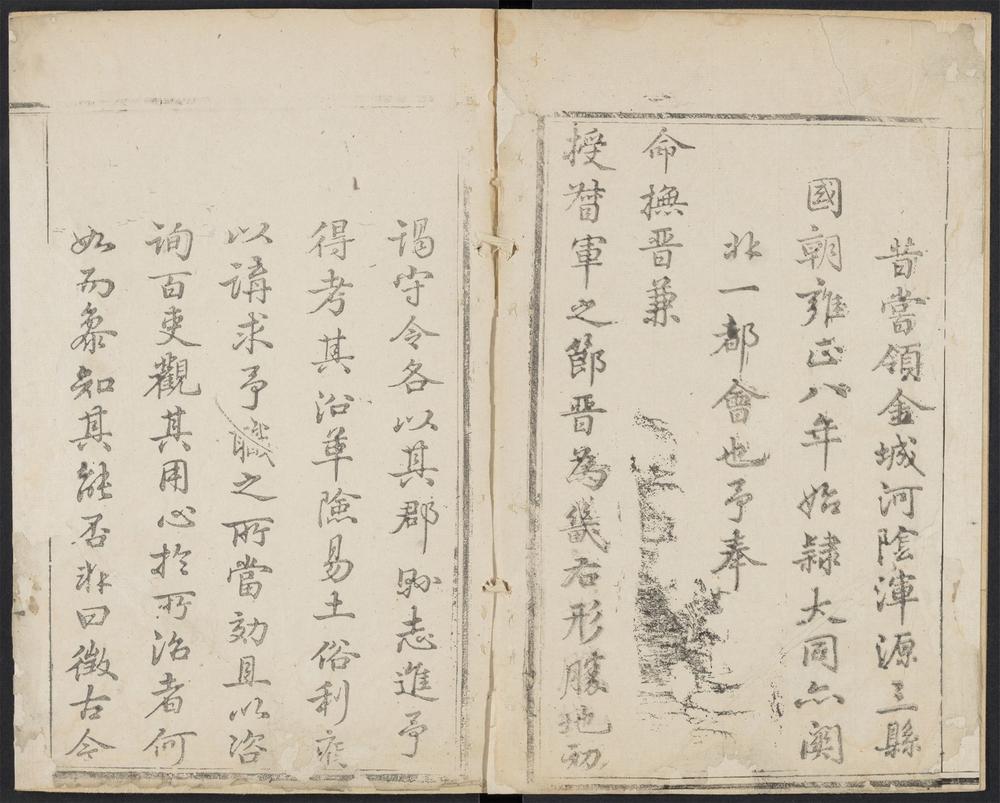 昔嘗領金城河陰渾源三縣
國朝雍正八年始隸大同亦關
北一都會也予奉
命撫晋兼
授督軍之節晋為畿右形勝地初
謁守令各以其郡縣志進予
得考其沿革險易土俗利病
以講求予職之所當効且以咨
詢百吏觀其用心於所治者何
如而參知其能否非曰徵古今